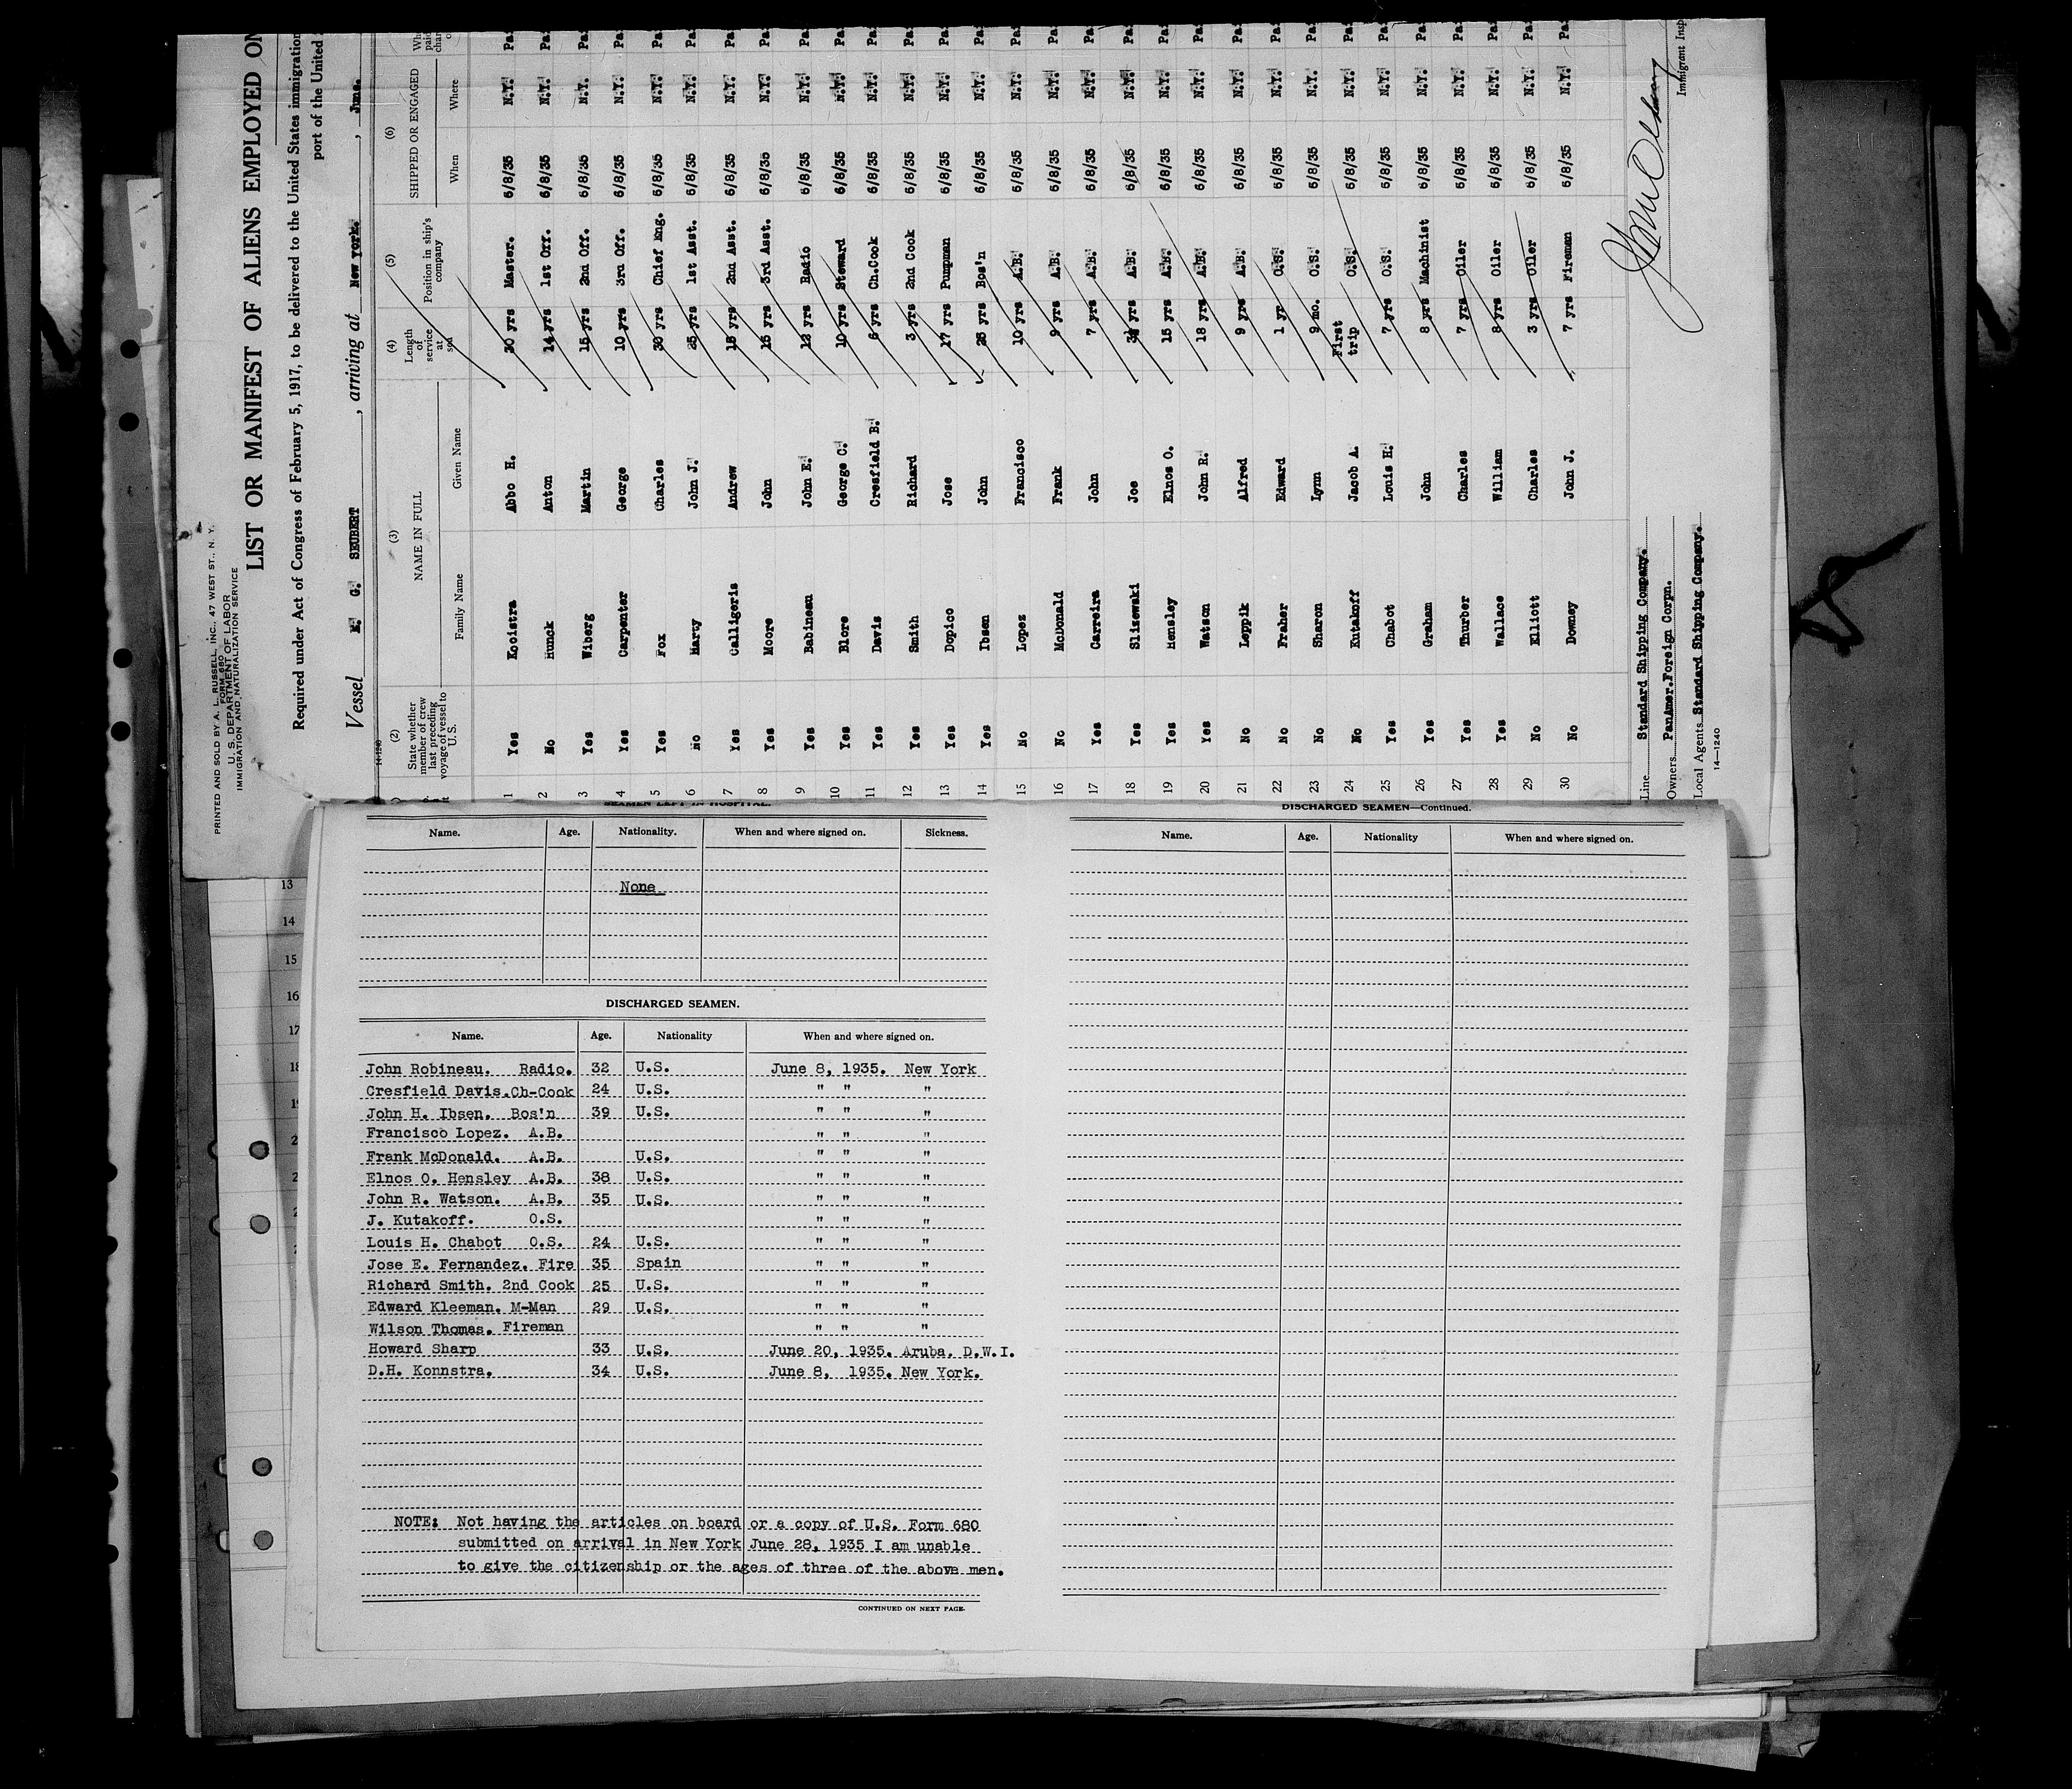 PRINTED AND SOLD BY A. L. RUSSELL, INC., 47 WEST ST., N. Y.
FORM 680
U. S. DEPARTMENT OF LABOR
IMMIGRATION AND NATURALIZATION SERVICE
LIST OR MANIFEST OF ALIENS EMPLOYED ON
Required under Act of Congress of February 5, 1917, to be delivered to the United States immigration
port of the United
Vessel E. G. SEUBERT, arriving at New York, June.
14-1240
(2) (3) (4) (5) (6)
State whether member of crew last preceding voyage of vessel to U.S. NAME IN FULL Length of service at sea Position in ship's company SHIPPED OR ENGAGED
Family Name Given Name When Where
1 Yes Kooistra Abbo H. 20 yrs Master. 6/8/35 N.Y.
2 No Hunck Anton 14 yrs 1st Off. 6/8/35 N.Y.
3 Yes Wiberg Martin 15 yrs 2nd Off. 6/8/35 N.Y.
4 Yes Carpenter George 10 yrs 3rd Off. 6/8/35 N.Y.
5 Yes Fox Charles 30 yrs Chief Eng. 6/8/35 N.Y.
6 No Harty John J. 25 yrs 1st Asst. 6/8/35 N.Y.
7 Yes Calligeris Andrew 15 yrs 2nd Asst. 6/8/35 N.Y.
8 Yes Moore John 15 yrs 3rd Asst. 6/8/35 N.Y.
9 Yes Babineau John E. 12 yrs Radio 6/8/35 N.Y.
10 Yes Blore George C. 10 yrs Steward 6/8/35 N.Y.
11 Yes Davis Cresfield B. 6 yrs Ch.Cook 6/8/35 N.Y.
12 Yes Smith Richard 3 yrs 2nd Cook 6/8/35 N.Y.
13 Yes Dopico Jose 17 yrs Pumpman 6/8/35 N.Y.
14 Yes Ibsen John 25 yrs Bos'n 6/8/35 N.Y.
15 No Lopez Francisco 10 yrs A.B. 6/8/35 N.Y.
16 No McDonald Frank 9 yrs A.B. 6/8/35 N.Y.
17 Yes Carreira John 7 yrs A.B. 6/8/35 N.Y.
18 Yes Slisewski Joe yrs A.B. 6/8/35 N.Y.
19 Yes Hensley Elnos O. 15 yrs A.B. 6/8/35 N.Y.
20 Yes Watson John R. 18 yrs A.B. 6/8/35 N.Y.
21 No Leppik Alfred 9 yrs A.B. 6/8/35 N.Y.
22 No Fraher Edward 1 yr O.S. 6/8/35 N.Y.
23 No Sharon Lynn 9 mo. O.S. 6/8/35 N.Y.
24 No Kutakoff Jacob A. First trip O.S. 6/8/35 N.Y.
25 Yes Chabot Louis H. 7 yrs O.S. 6/8/35 N.Y.
26 Yes Graham John 8 yrs Machinist 6/8/35 N.Y.
27 Yes Thurber Charles 7 yrs Oiler 6/8/35 N.Y.
28 Yes Wallace William 8 yrs Oiler 6/8/35 N.Y.
29 No Elliott Charles 3 yrs Oiler 6/8/35 N.Y.
30 No Downey John J. 7 yrs Fireman 6/8/35 N.Y.
Line Standard Shipping Company.
Owners PanAmer.Foreign Corpn.
Local Agents Standard Shipping Company.
14—1240
Immigrant Insp
SEAMEN LEFT IN HOSPITAL.
Name. Age. Nationality. When and where signed on. Sickness.
None
DISCHARGED SEAMEN.
Name. Age. Nationality When and where signed on.
John Robineau. Radio. 32 U.S. June 8, 1935. New York
Cresfield Davis.Ch-Cook 24 U.S. " " "
John H. Ibsen. Bos'n 39 U.S. " " "
Francisco Lopez. A.B. " " "
Frank McDonald. A.B. U.S. " " "
Elnos O. Hensley A.B. 38 U.S. " " "
John R. Watson. A.B. 35 U.S. " " "
J. Kutakoff. O.S. " " "
Louis H. Chabot O.S. 24 U.S. " " "
Jose E. Fernandez. Fire 35 Spain " " "
Richard Smith. 2nd Cook 25 U.S. " " "
Edward Kleeman. M-Man 29 U.S. " " "
Wilson Thomas. Fireman " " "
Howard Sharp 33 U.S. June 20, 1935. Aruba. D.W.I.
D.H. Konnstra. 34 U.S. June 8, 1935. New York.
NOTE: Not having the articles on board or a copy of U.S. Form 680
submitted on arrival in New York June 28, 1935 I am unable
to give the citizenship or the ages of three of the above men.
CONTINUED ON NEXT PAGE.
DISCHARGED SEAMEN—Continued.
Name. Age. Nationality When and where signed on.
13
14
15
16
17